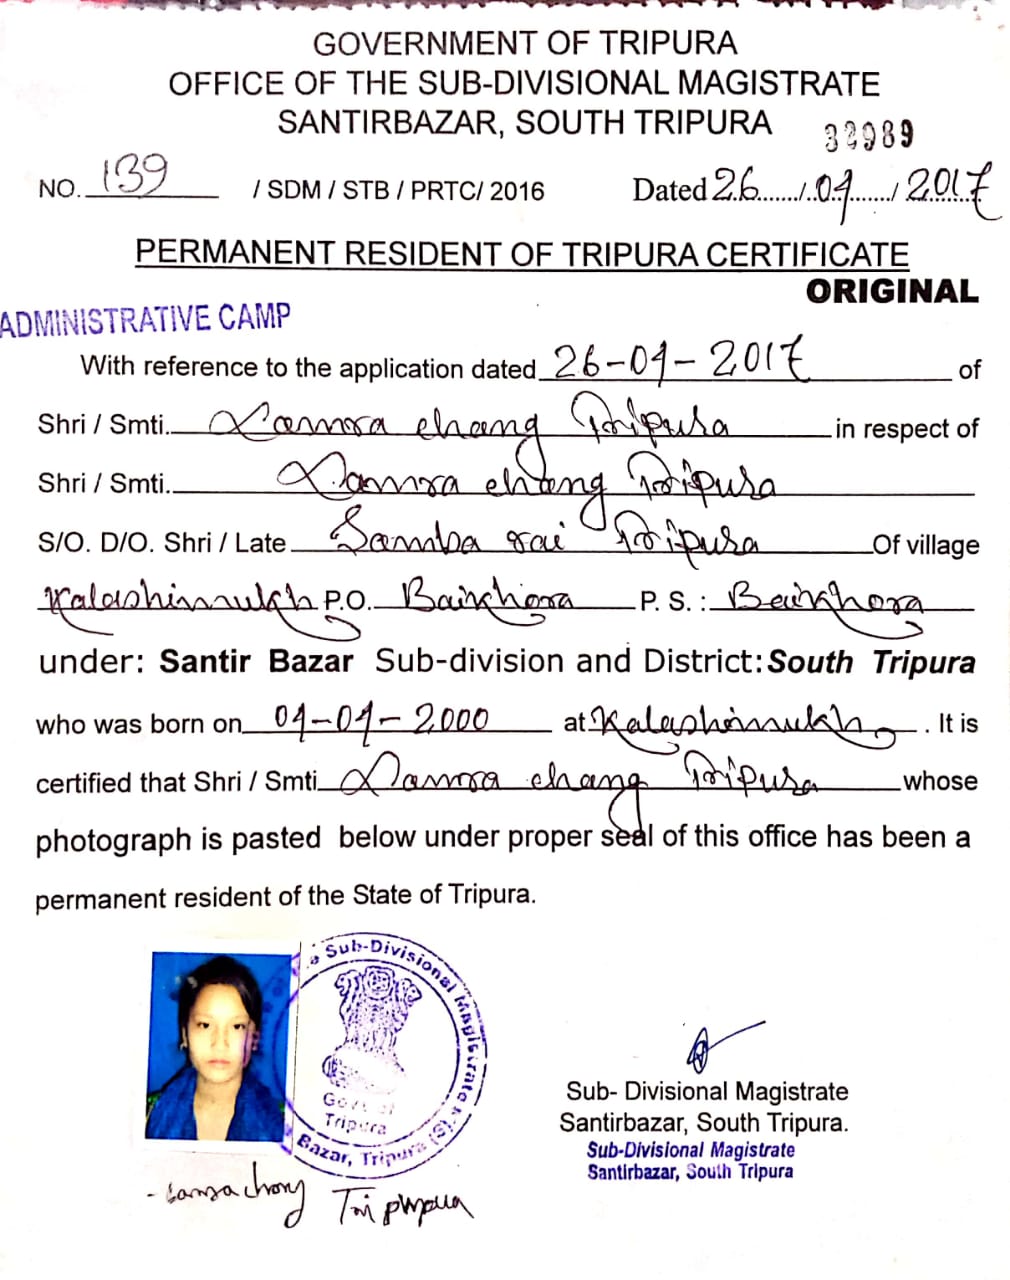 GOVERNMENT OF TRIPURA
OFFICE OF THE SUB-DIVISIONAL MAGISTRATE
SANTIRBAZAR, SOUTH TRIPURA 32989
NO. 139 / SDM / STB / PRTC/ 2016 Dated 26/04/2017
PERMANENT RESIDENT OF TRIPURA CERTIFICATE
ORIGINAL
ADMINISTRATIVE CAMP
With reference to the application dated 26-04-2017 of
Shri / Smti. chang Tripura in respect of
Shri / Smti. chang Tripura
S/O. D/O. Shri / Late Samba rai Tripura Of village
Kalashimukh P.O. Baikhora P. S. : Baikhora
under: Santir Bazar Sub-division and District: South Tripura
who was born on 04-04-2000 at Kalashimukh . It is
certified that Shri / Smti chang Tripura whose
photograph is pasted below under proper seal of this office has been a
permanent resident of the State of Tripura.
Sub-Divisional Magistrate
Govt. of
Tripura
Bazar, Tripura (S)
Sub- Divisional Magistrate
Santirbazar, South Tripura.
Sub-Divisional Magistrate
Santirbazar, South Tripura